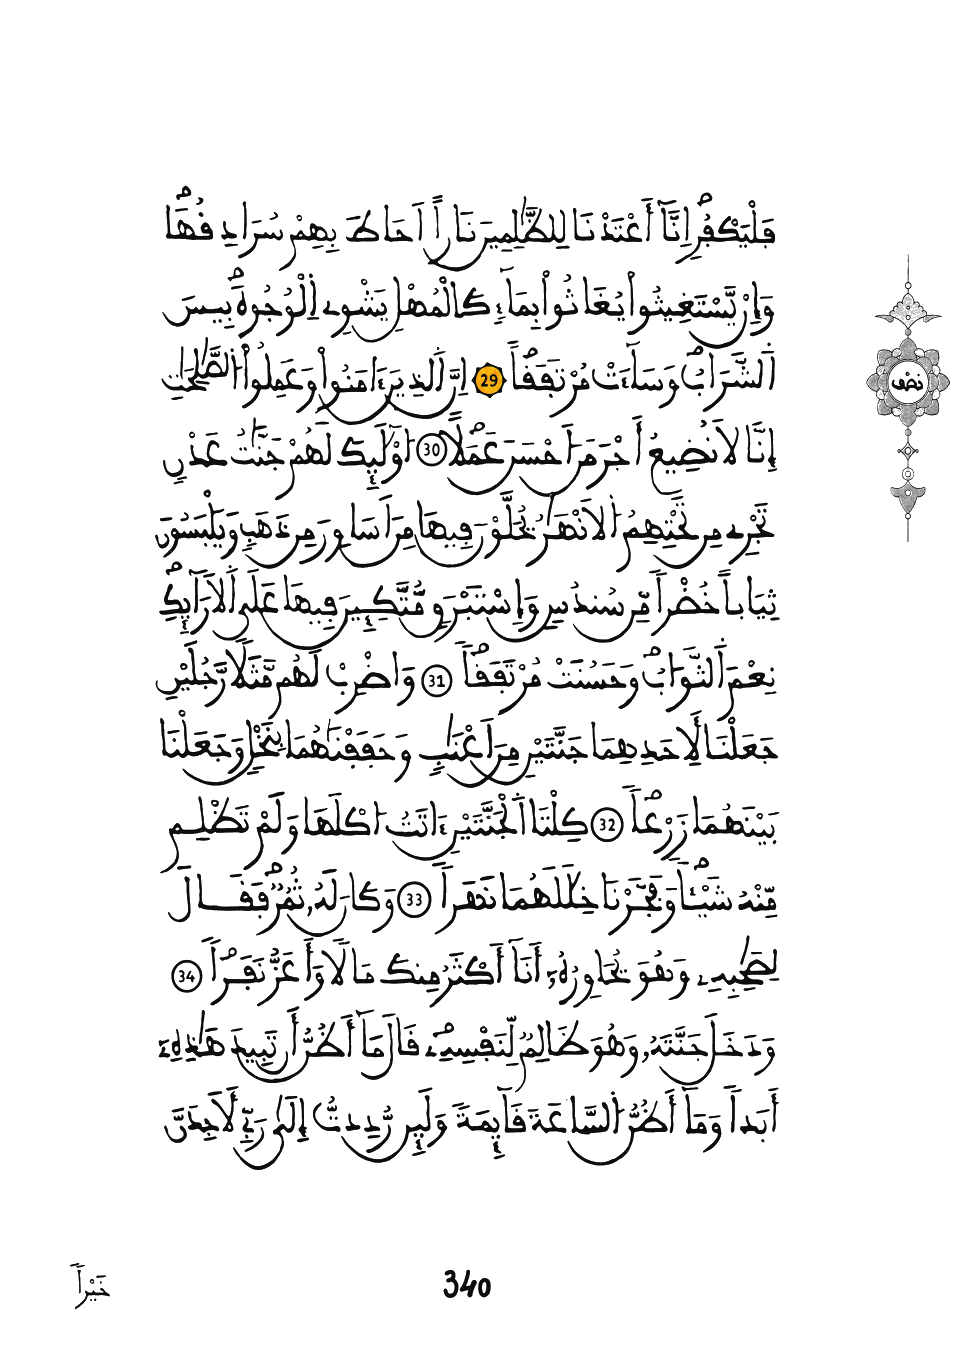 فَلْيَكْفُرِ اِنَّآ أَعْتَدْنَا لِلظَّٰلِمِينَ نَاراً أَحَاطَ بِهِمْ سُرَادِقُهَا
وَإِنْ يَّسْتَغِيثُوا يُغَاثُوا بِمَآءٍ كَالْمُهْلِ يَشْوِے اِ۬لْوُجُوهَ بِيسَ
اَ۬لشَّرَابُ وَسَآءَتْ مُرْتَفَقاً 29 إِنَّ اَ۬لذِينَ ءَامَنُوا وَعَمِلُوا اُ۬لصَّٰلِحَٰتِ
إِنَّا لَا نُضِيعُ أَجْرَ مَنَ اَحْسَنَ عَمَلاً 30 اوْلَٰٓئِكَ لَهُمْ جَنَّٰتُ عَدْنٍ
تَجْرِے مِن تَحْتِهِمُ اُ۬لَانْهَٰرُ يُحَلَّوْنَ فِيهَا مِنَ اَسَاوِرَ مِن ذَهَبٍ وَيَلْبَسُونَ
ثِيَاباً خُضْراً مِّن سُندُسٍ وَإِسْتَبْرَقٍ مُّتَّكِـِٕينَ فِيهَا عَلَي اَ۬لَارَآئِكِ
نِعْمَ اَ۬لثَّوَابُ وَحَسُنَتْ مُرْتَفَقاً 31 وَاضْرِبْ لَهُم مَّثَلاً رَّجُلَيْنِ
جَعَلْنَا لِأَحَدِهِمَا جَنَّتَيْنِ مِنَ اَعْنَٰبٍ وَحَفَفْنَٰهُمَا بِنَخْلٍ وَجَعَلْنَا
بَيْنَهُمَا زَرْعاً 32 كِلْتَا اَ۬لْجَنَّتَيْنِ ءَاتَتُ ا۟كْلَهَا وَلَمْ تَظْلِم
مِّنْهُ شَيْـٔاً وَفَجَّرْنَا خِلَٰلَهُمَا نَهَراً 33 وَكَانَ لَهُۥ ثُمُرٌ فَقَالَ
لِصَٰحِبِهِۦ وَهُوَ يُحَاوِرُهُۥٓ أَنَآ أَكْثَرُ مِنكَ مَالاً وَأَعَزُّ نَفَراً 34
وَدَخَلَ جَنَّتَهُۥ وَهُوَ ظَالِمٌ لِّنَفْسِهِۦ قَالَ مَآ أَظُنُّ أَن تَبِيدَ هَٰذِهِۦٓ
أَبَداً وَمَآ أَظُنُّ اُ۬لسَّاعَةَ قَآئِمَةً وَلَئِن رُّدِدتُّ إِلَىٰ رَبِّے لَأَجِدَنَّ
نصف
340
خَيْراً